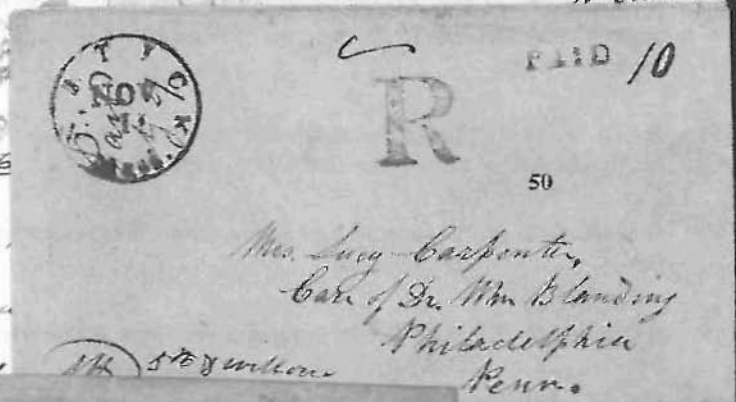 PAID 10
R
50
Mrs. Lucy Carpenter,
Care of Dr. Wm Blanding
Philadelphia
Penn.
5th &